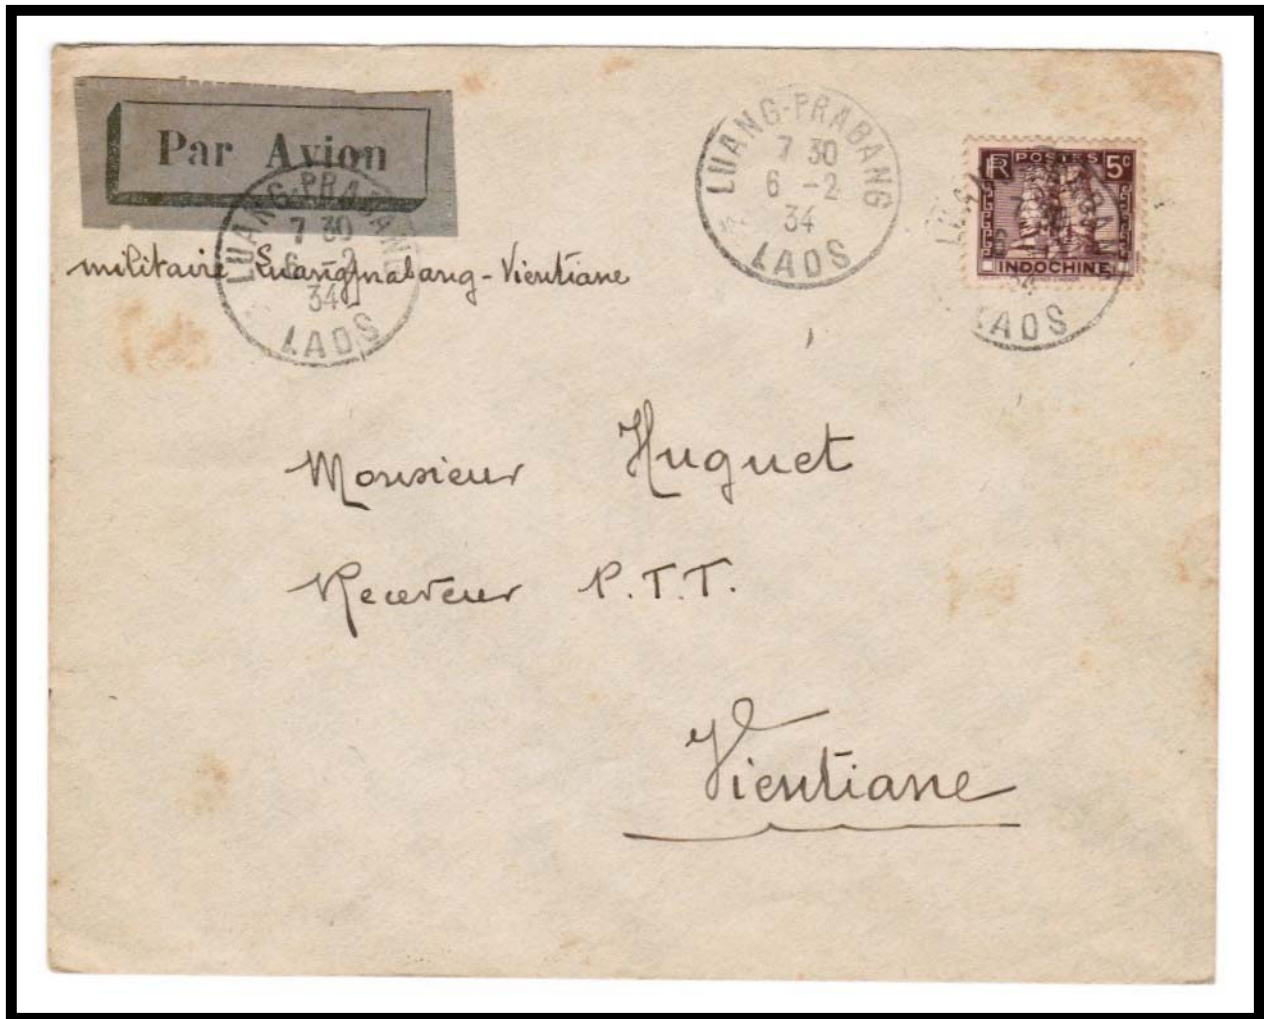 Par Avion
LUANG-PRABANG
7 30
6 -2
34
LAOS
militaire Luangprabang-Vientiane
LUANG-PRABANG
7 30
6 -2
34
LAOS
RF POSTES 5c
INDOCHINE
LAOS
Monsieur Huguet
Receveur P.T.T.
Vientiane